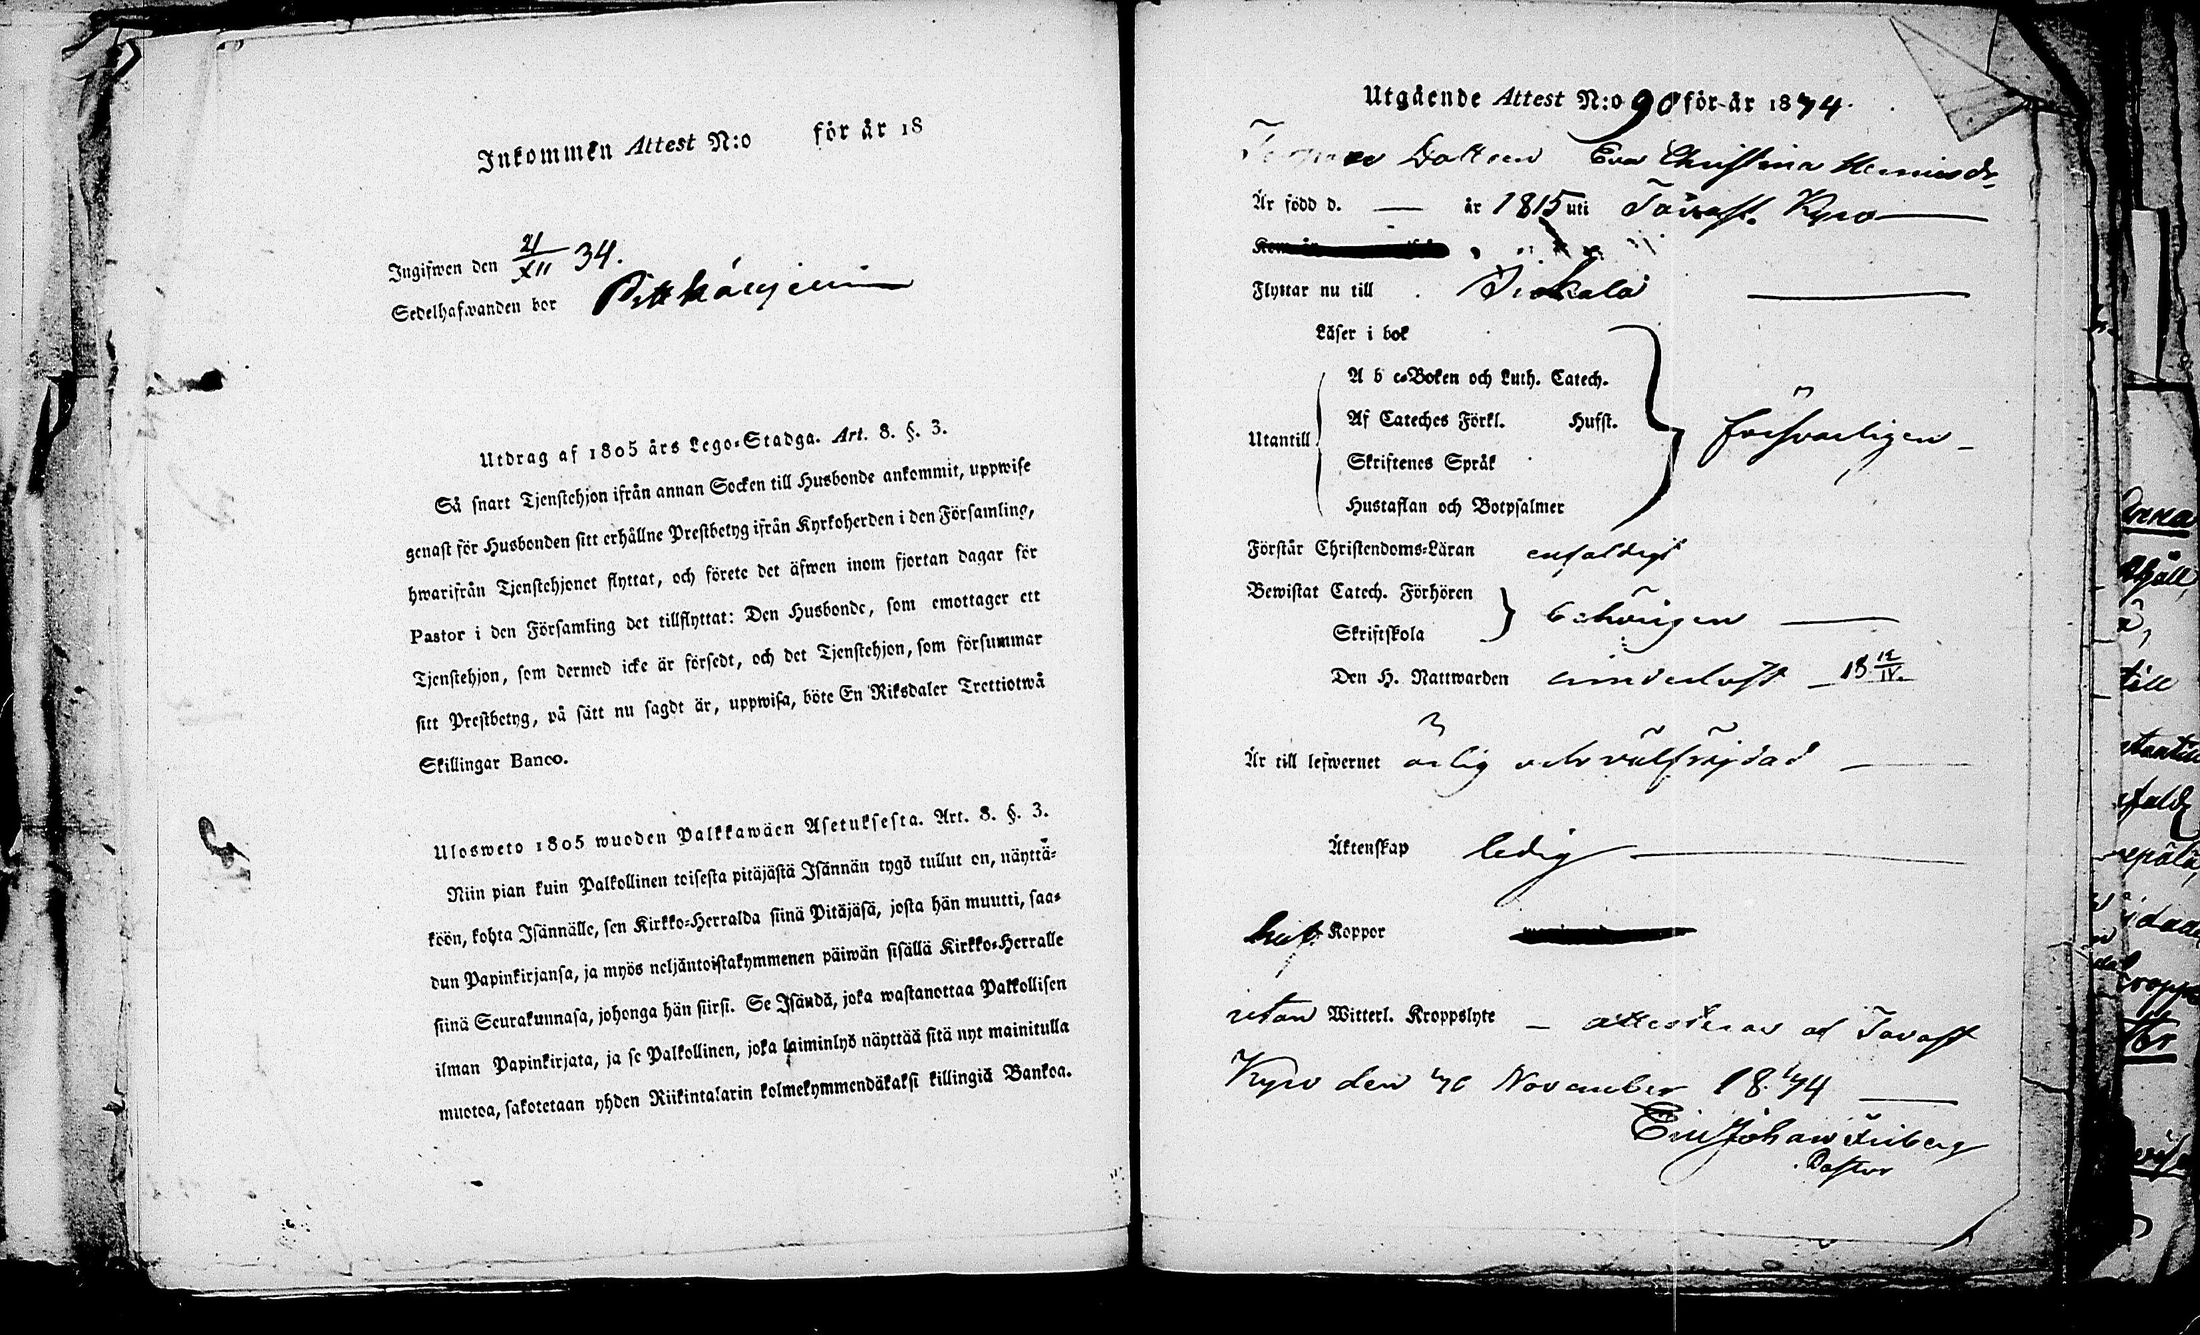 Inkommen Attest N:o för år 18
Ingifwen den 21/XII 34.
Sedelhafwanden bor
Utdrag af 1805 års Lego-Stadga. Art. 8. §. 3.
Så snart Tjenstehjon ifrån annan Socken till Husbonde ankommit, uppwise
genast för Husbonden sitt erhållne Prestbetyg ifrån Kyrkoherden i den Församling,
hwarifrån Tjenstehjonet flyttat, och förete det äfwen inom fjortan dagar för
Pastor i den Församling det tillflyttat: Den Husbonde, som emottager ett
Tjenstehjon, som dermed icke är försedt, och det Tjenstehjon, som försummar
sitt Prestbetyg, på sätt nu sagdt är, uppwisa, böte En Riksdaler Trettiotwå
Skillingar Banco.
Ulosweto 1805 wuoden Palkkawäen Asetuksesta. Art. 8. §. 3.
Niin pian kuin Palkollinen toisesta pitäjästä Isännän tygö tullut on, näyttä-
köön, kohta Isännälle, sen Kirkko-Herralda siinä Pitäjäsä, josta hän muutti, saa-
dun Papinkirjansa, ja myös neljäntoistakymmenen päiwän sisällä Kirkko-Herralle
siinä Seurakunnasa, johonga hän siirsi. Se Isändä, joka wastanottaa Palkollisen
ilman Papinkirjata, ja se Palkollinen, joka laiminlyö näyttää sitä nyt mainitulla
muotoa, sakotetaan yhden Riikintalarin kolmekymmendäkaksi killingiä Bankoa.
Utgående Attest N:o 90 för år 1834.
Dottren Eva Christina Henricsdr
Är född d. — år 1815 uti Tavast Kyro
Flyttar nu till
Läser i bok
A b c-Boken och Luth. Catech.
Af Cateches Förkl. Hufst.
Utantill
Skriftenes Språk
Hustaflan och Botpsalmer
försvarligen
Förstår Christendoms-Läran enfaldigt
Bewistat Catech. Förhören
Skriftskola
behörigen
Den H. Nattwarden sist 18 12/IV.
Är till lefwernet ärlig och välfrejdad
Äktenskap ledig
haft Koppor
utan Witterl. Kroppslyte — attesteras af Tavast
Kyro den November 1834
Johan Friberg
Pastor